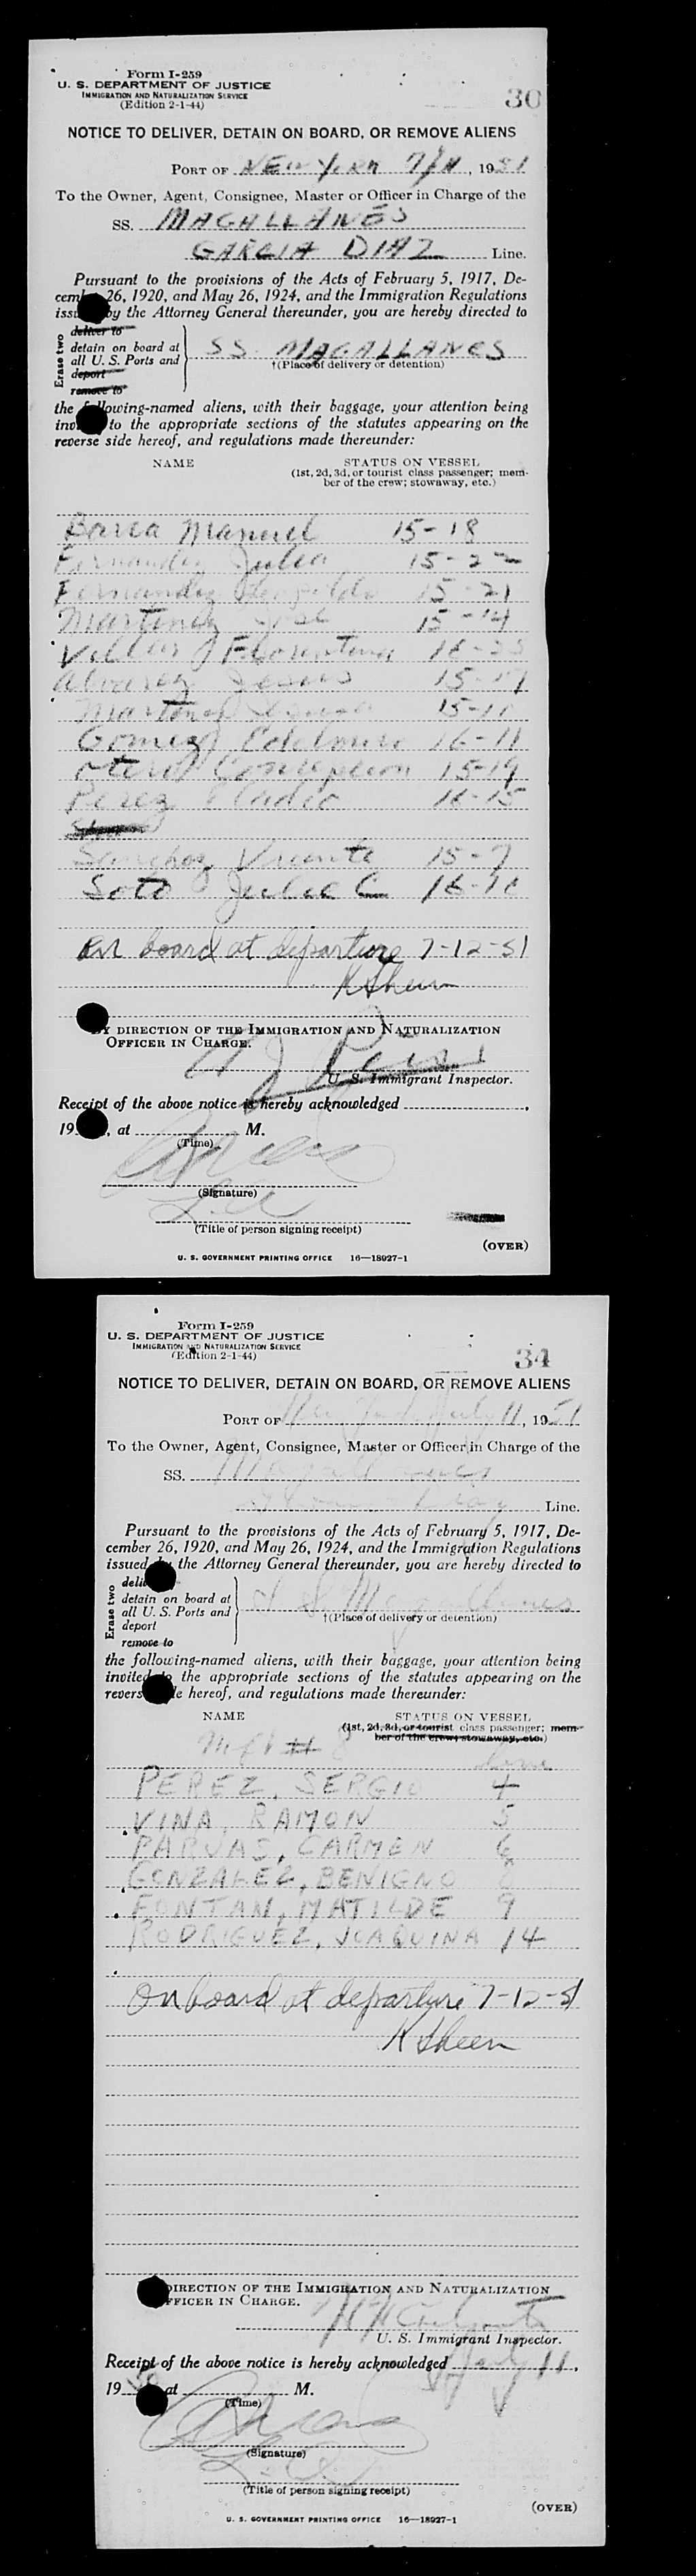 Form I-259
U. S. DEPARTMENT OF JUSTICE
IMMIGRATION AND NATURALIZATION SERVICE
(Edition 2-1-44)
30
NOTICE TO DELIVER, DETAIN ON BOARD, OR REMOVE ALIENS
PORT OF NEW YORK 7/11, 1951
To the Owner, Agent, Consignee, Master or Officer in Charge of the
SS. MAGALLANES
GARCIA DIAZ Line.
Pursuant to the provisions of the Acts of February 5, 1917, De-
cember 26, 1920, and May 26, 1924, and the Immigration Regulations
issued by the Attorney General thereunder, you are hereby directed to
Erase two
deliver to
detain on board at
all U. S. Ports and
deport
remove to
SS. MAGALLANES
†(Place of delivery or detention)
the following-named aliens, with their baggage, your attention being
invited to the appropriate sections of the statutes appearing on the
reverse side hereof, and regulations made thereunder:
NAME STATUS ON VESSEL
(1st, 2d, 3d, or tourist class passenger; mem-
ber of the crew; stowaway, etc.)
Manuel 15-18
Fernandez Julia 15-22
Fernandez 15-21
Martinez Jose 15-14
Villar Florentina
Alvarez Jesus
Martinez 15-11
Gomez 16-11
Otero Concepcion 15-19
Perez Eladio 16-15
Sanchez Vicente 15-7
Soto Julio C
On board at departure 7-12-51
K Sheen
BY DIRECTION OF THE IMMIGRATION AND NATURALIZATION
OFFICER IN CHARGE.
U. S. Immigrant Inspector.
Receipt of the above notice is hereby acknowledged
19 , at M.
(Time)
(Signature)
(Title of person signing receipt)
(OVER)
U. S. GOVERNMENT PRINTING OFFICE 16—18927-1
Form I-259
U. S. DEPARTMENT OF JUSTICE
IMMIGRATION AND NATURALIZATION SERVICE
(Edition 2-1-44)
34
NOTICE TO DELIVER, DETAIN ON BOARD, OR REMOVE ALIENS
PORT OF New York July 11, 1951
To the Owner, Agent, Consignee, Master or Officer in Charge of the
SS. Magallanes
Line.
Pursuant to the provisions of the Acts of February 5, 1917, De-
cember 26, 1920, and May 26, 1924, and the Immigration Regulations
issued by the Attorney General thereunder, you are hereby directed to
Erase two
deliver to
detain on board at
all U. S. Ports and
deport
remove to
S S Magallanes
†(Place of delivery or detention)
the following-named aliens, with their baggage, your attention being
invited to the appropriate sections of the statutes appearing on the
reverse side hereof, and regulations made thereunder:
NAME STATUS ON VESSEL
(1st, 2d, 3d, or tourist class passenger; mem-
ber of the crew; stowaway, etc.)
line
PEREZ, SERGIO 4
VINA, RAMON 5
PARJAS, CARMEN 6
GONZALEZ, BENIGNO 8
FONTAN, MATILDE 9
RODRIGUEZ, JOAQUINA 14
On board at departure 7-12-51
K Sheen
DIRECTION OF THE IMMIGRATION AND NATURALIZATION
OFFICER IN CHARGE.
U. S. Immigrant Inspector.
Receipt of the above notice is hereby acknowledged July 11,
19 at M.
(Time)
(Signature)
(Title of person signing receipt)
(OVER)
U. S. GOVERNMENT PRINTING OFFICE 16—18927-1